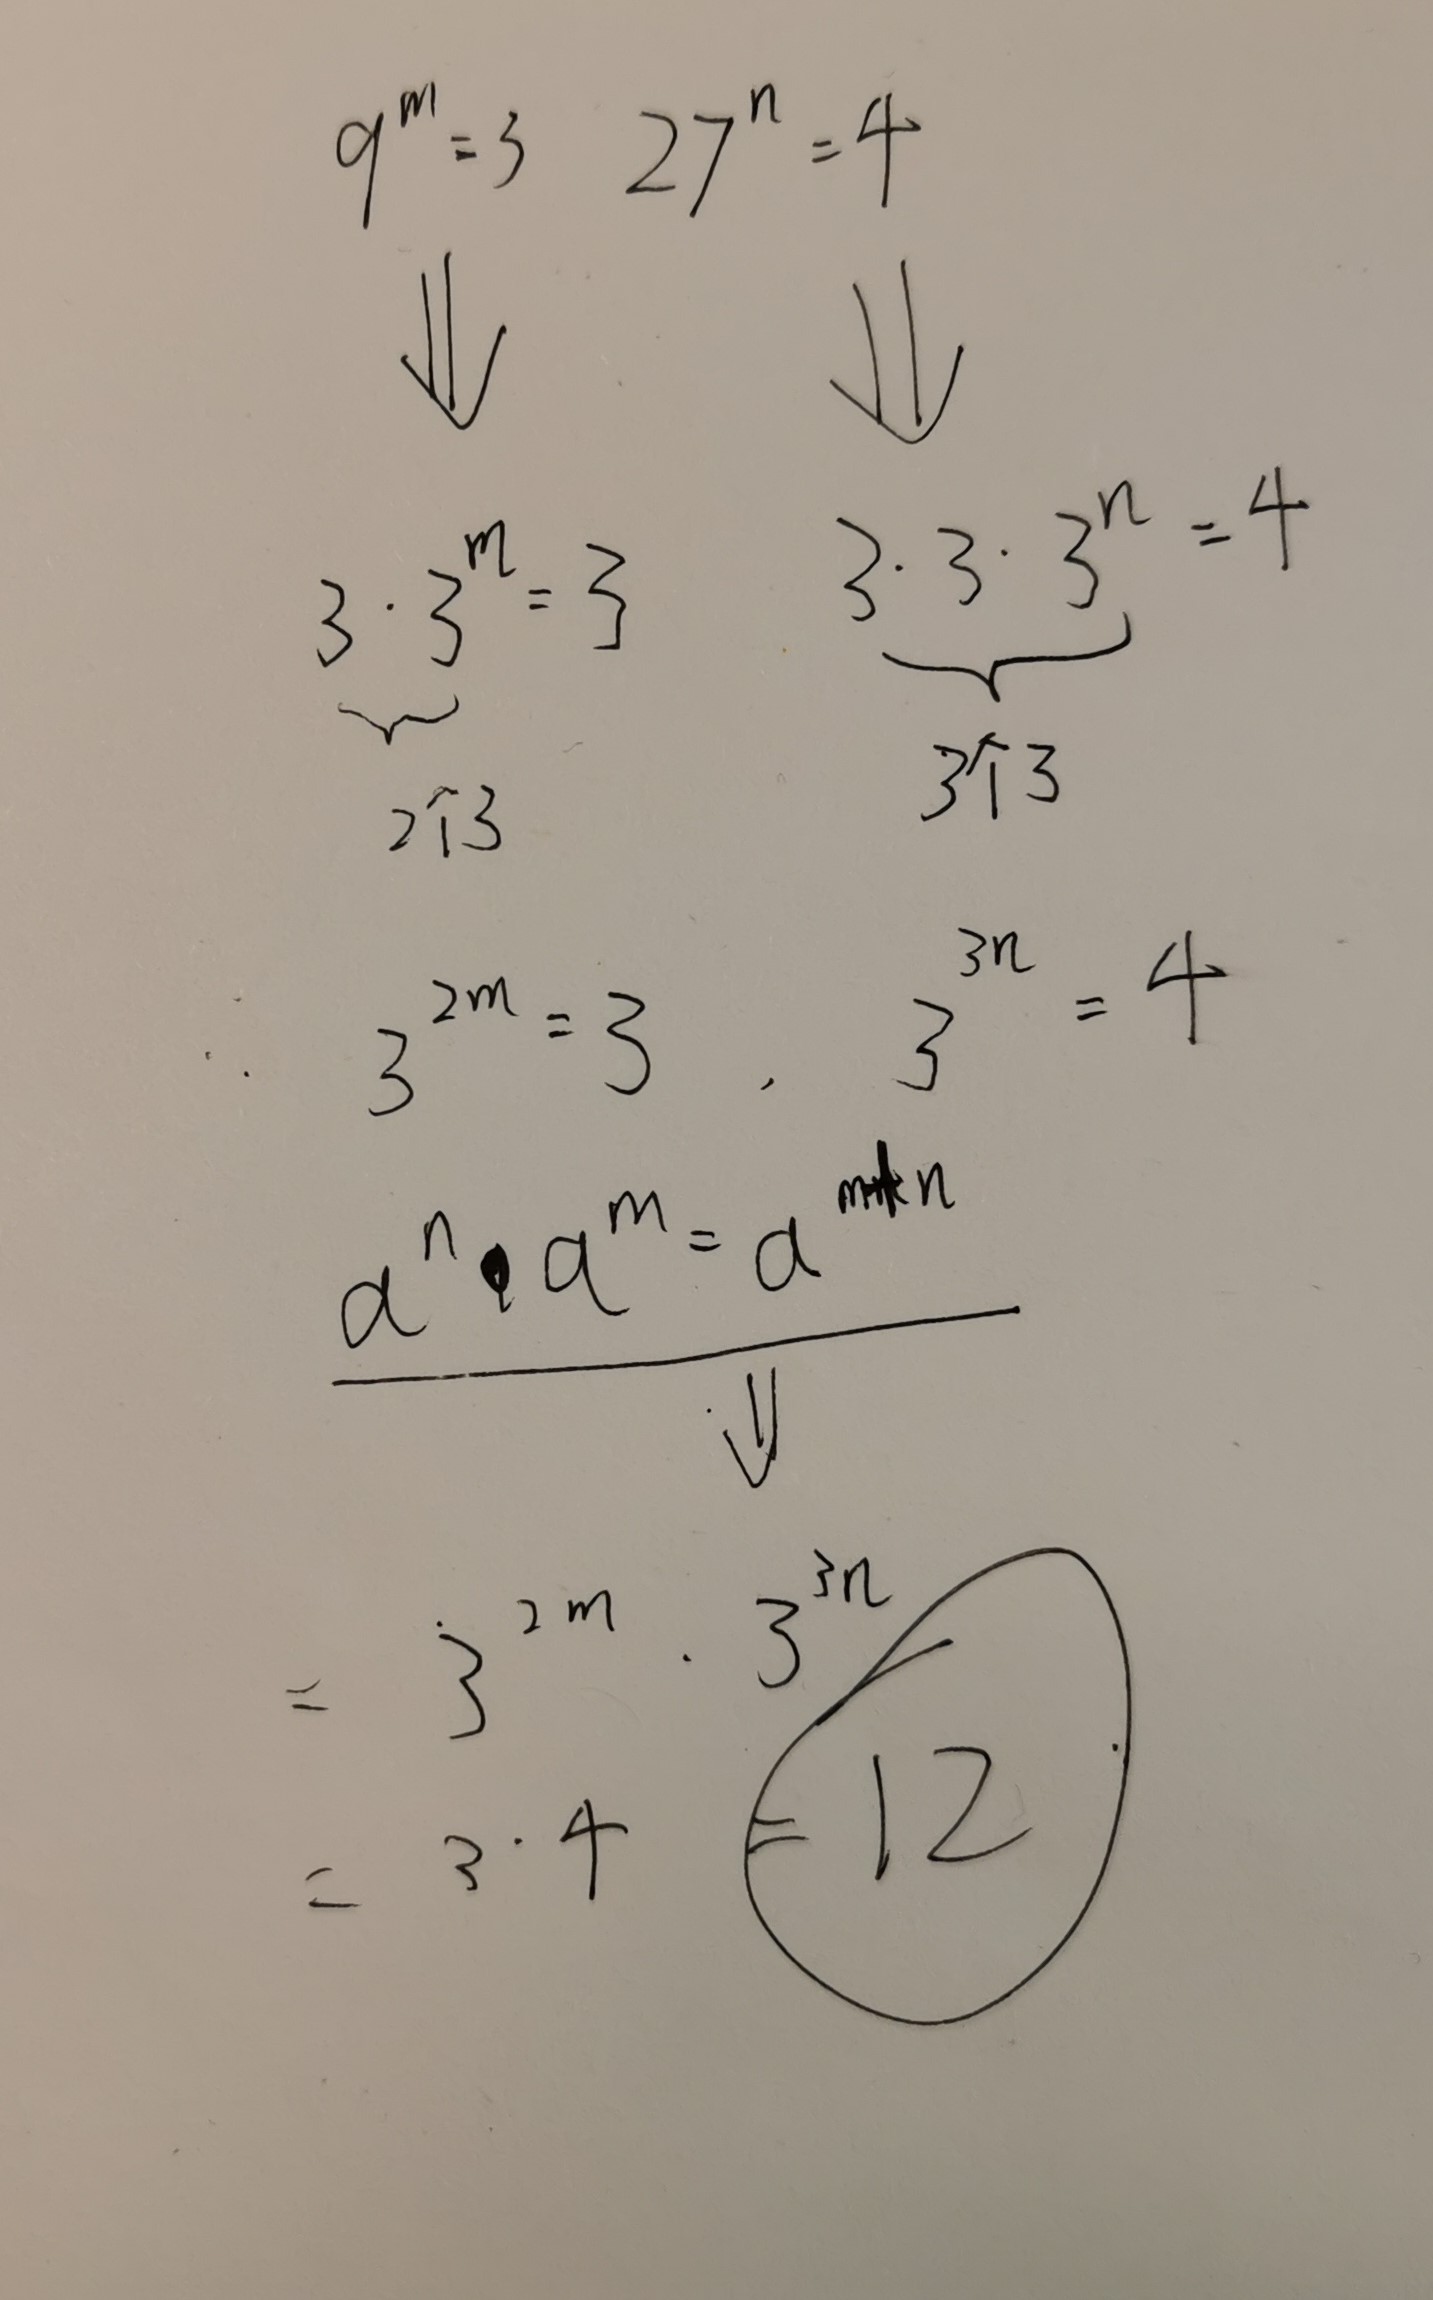 9^m=3 27^n=4
3·3^m=3 3·3·3^n=4
2个3 3个3
3^2m=3 , 3^3n=4
a^n·a^m=a^m+n
=3^2m·3^3n
=3·4 =12